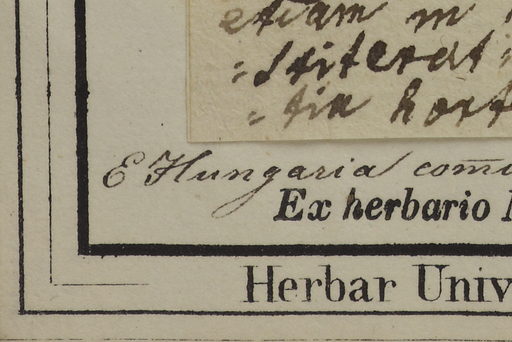 etiam in
:stiterat
=tin hort
E Hungaria com̄
Ex herbario
Herbar Univ